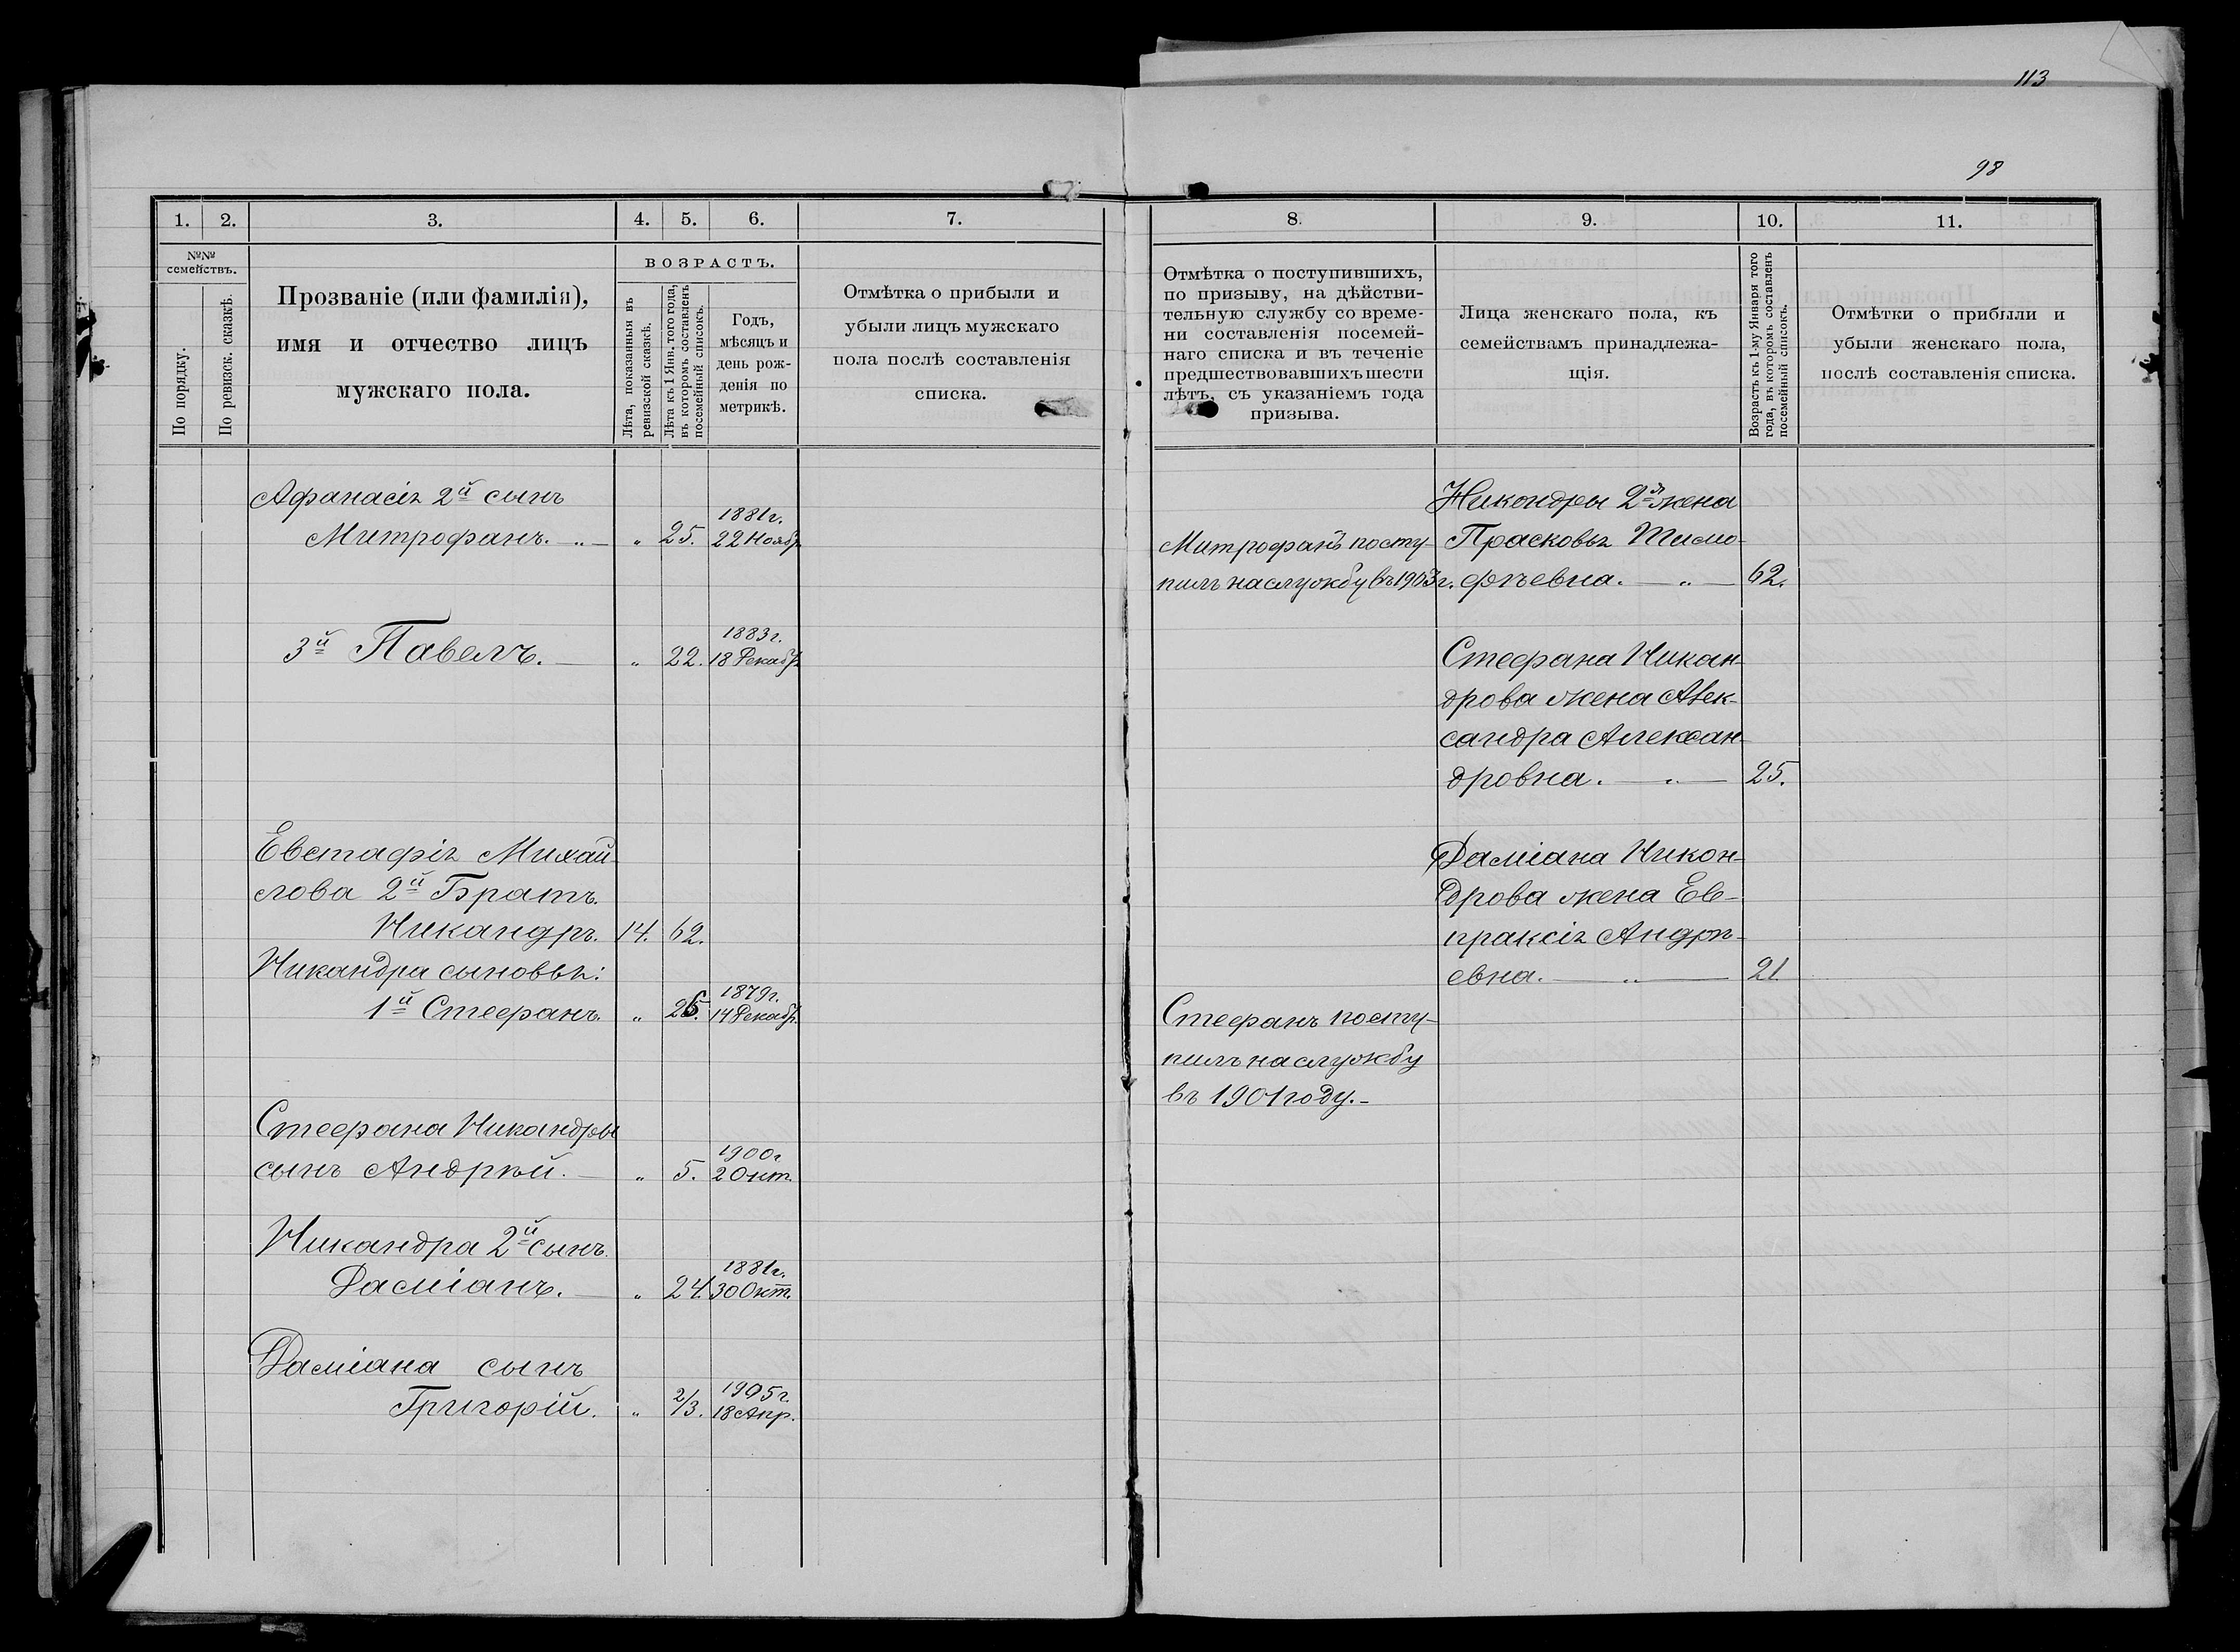 113
98
1.
2.
3.
4.
5.
6.
7.
№№ семействъ.
По порядку.
По ревизск. сказкѣ.
Прозваніе (или фамилія),
имя и отчество лицъ
мужскаго пола.
ВОЗРАСТЪ.
Лѣта, показанныя въ
ревизской сказкѣ.
Лѣта къ 1 Янв. того года,
въ которомъ составленъ
посемейный списокъ.
Годъ,
мѣсяцъ и
день рож-
денія по
метрикѣ.
Отмѣтка о прибыли и
убыли лицъ мужскаго
пола послѣ составленія
списка.
Афанасія 2й сынъ
1881г.
Митрофанъ. „ „ 25. 22 Ноябр.
1883г.
3й Павелъ. „ 22. 18 Декабр.
Евстафія Михай-
лова 2й Братъ.
Никандръ. 14. 62.
Никандра сыновья:
1879г.
1й Стефанъ. „ 26. 14 Декабр.
Стефана Никандры
1900г
сынъ Андрѣй. „ 5. 2 Окт.
Никандра 2й сынъ.
1881г.
Даміанъ. „ 24. 30 Окт.
Даміана сынъ
1905г.
Григорій. „ 2/3. 18 Апр.
8.
9.
10.
11.
Отмѣтка о поступившихъ,
по призыву, на дѣйстви-
тельную службу со време-
ни составленія посемей-
наго списка и въ теченіе
предшествовавшихъ шести
лѣтъ, съ указаніемъ года
призыва.
Лица женскаго пола, къ
семействамъ принадлежа-
щія.
Возрастъ къ 1-му Января того
года, въ которомъ составленъ
посемейный списокъ.
Отмѣтки о прибыли и
убыли женскаго пола,
послѣ составленія списка.
Митрофанъ посту-
пилъ на службу въ 1903г.
Никондры 2я жена
Прасковья Тимо-
фѣевна. „ 62.
Стефана Никан-
дрова жена Алек-
сандра Алексан-
дровна. „ 25.
Даміана Никон-
дрова жена Ев-
праксія Андрѣ-
евна. „ 21
Стефанъ посту-
пилъ на службу
въ 1901 году.-